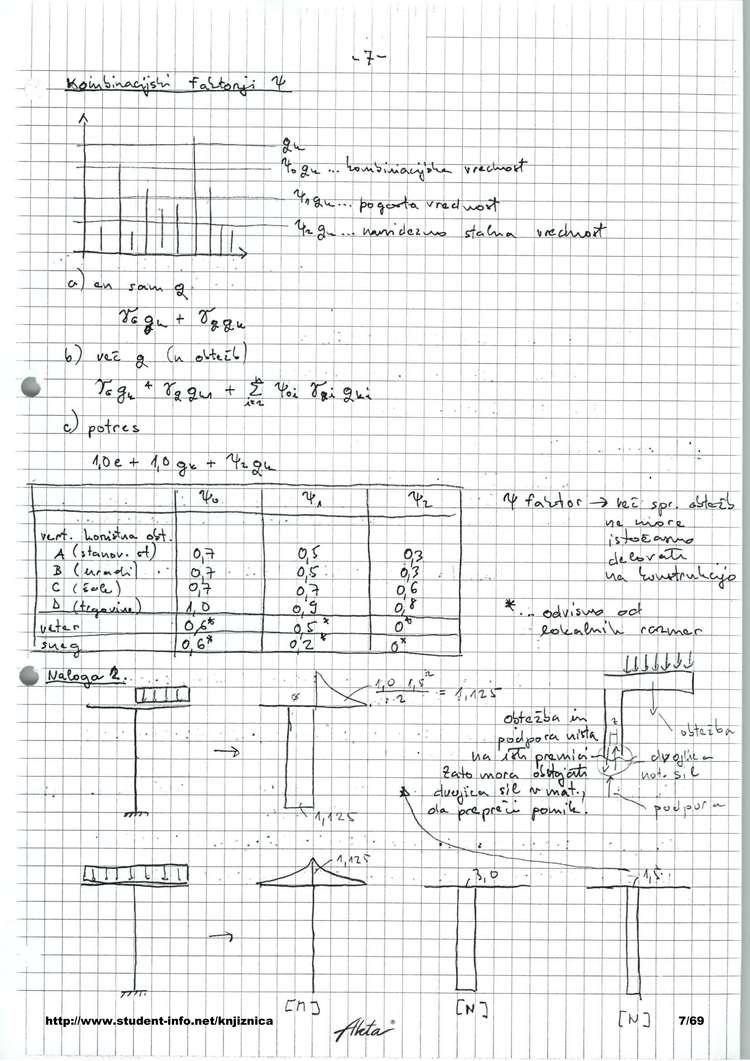 -7-
Kombinacijski faktorji ψ
qk
ψ0 qk ... kombinacijska vrednost
ψ1 qk ... pogosta vrednost
ψ2 qk ... navidezno stalna vrednost
a) en sam q
γG gk + γq qk
b) več q (n obtežb)
γG gk + γq qk1 + Σ ψ0i γqi qki
i=2
n
c) potres
1,0 e + 1,0 gk + ψ2 qk
ψ0 ψ1 ψ2
vert. koristna obt.
A (stanov. st) 0,7 0,5 0,3
B (uradi) 0,7 0,5 0,3
C (šole) 0,7 0,7 0,6
D (trgovine) 1,0 0,9 0,8
veter 0,6* 0,5* 0*
sneg 0,6* 0,2* 0*
ψ faktor → več spr. obtežb
ne more
istočasno
delovati
na konstrukcijo
* ... odvisno od
lokalnih razmer
Naloga 2.
1,0 1,5² = 1,125
2
1,125
obtežba in
podpora nista
na isti premici
Zato mora obstajati
dvojica sil v mat.,
da prepreči pomik.
obtežba
dvojica
not. sil
podpora
1,125
3,0
1,5
[M]
[N]
[N]
http://www.student-info.net/knjiznica
Akta
7/69